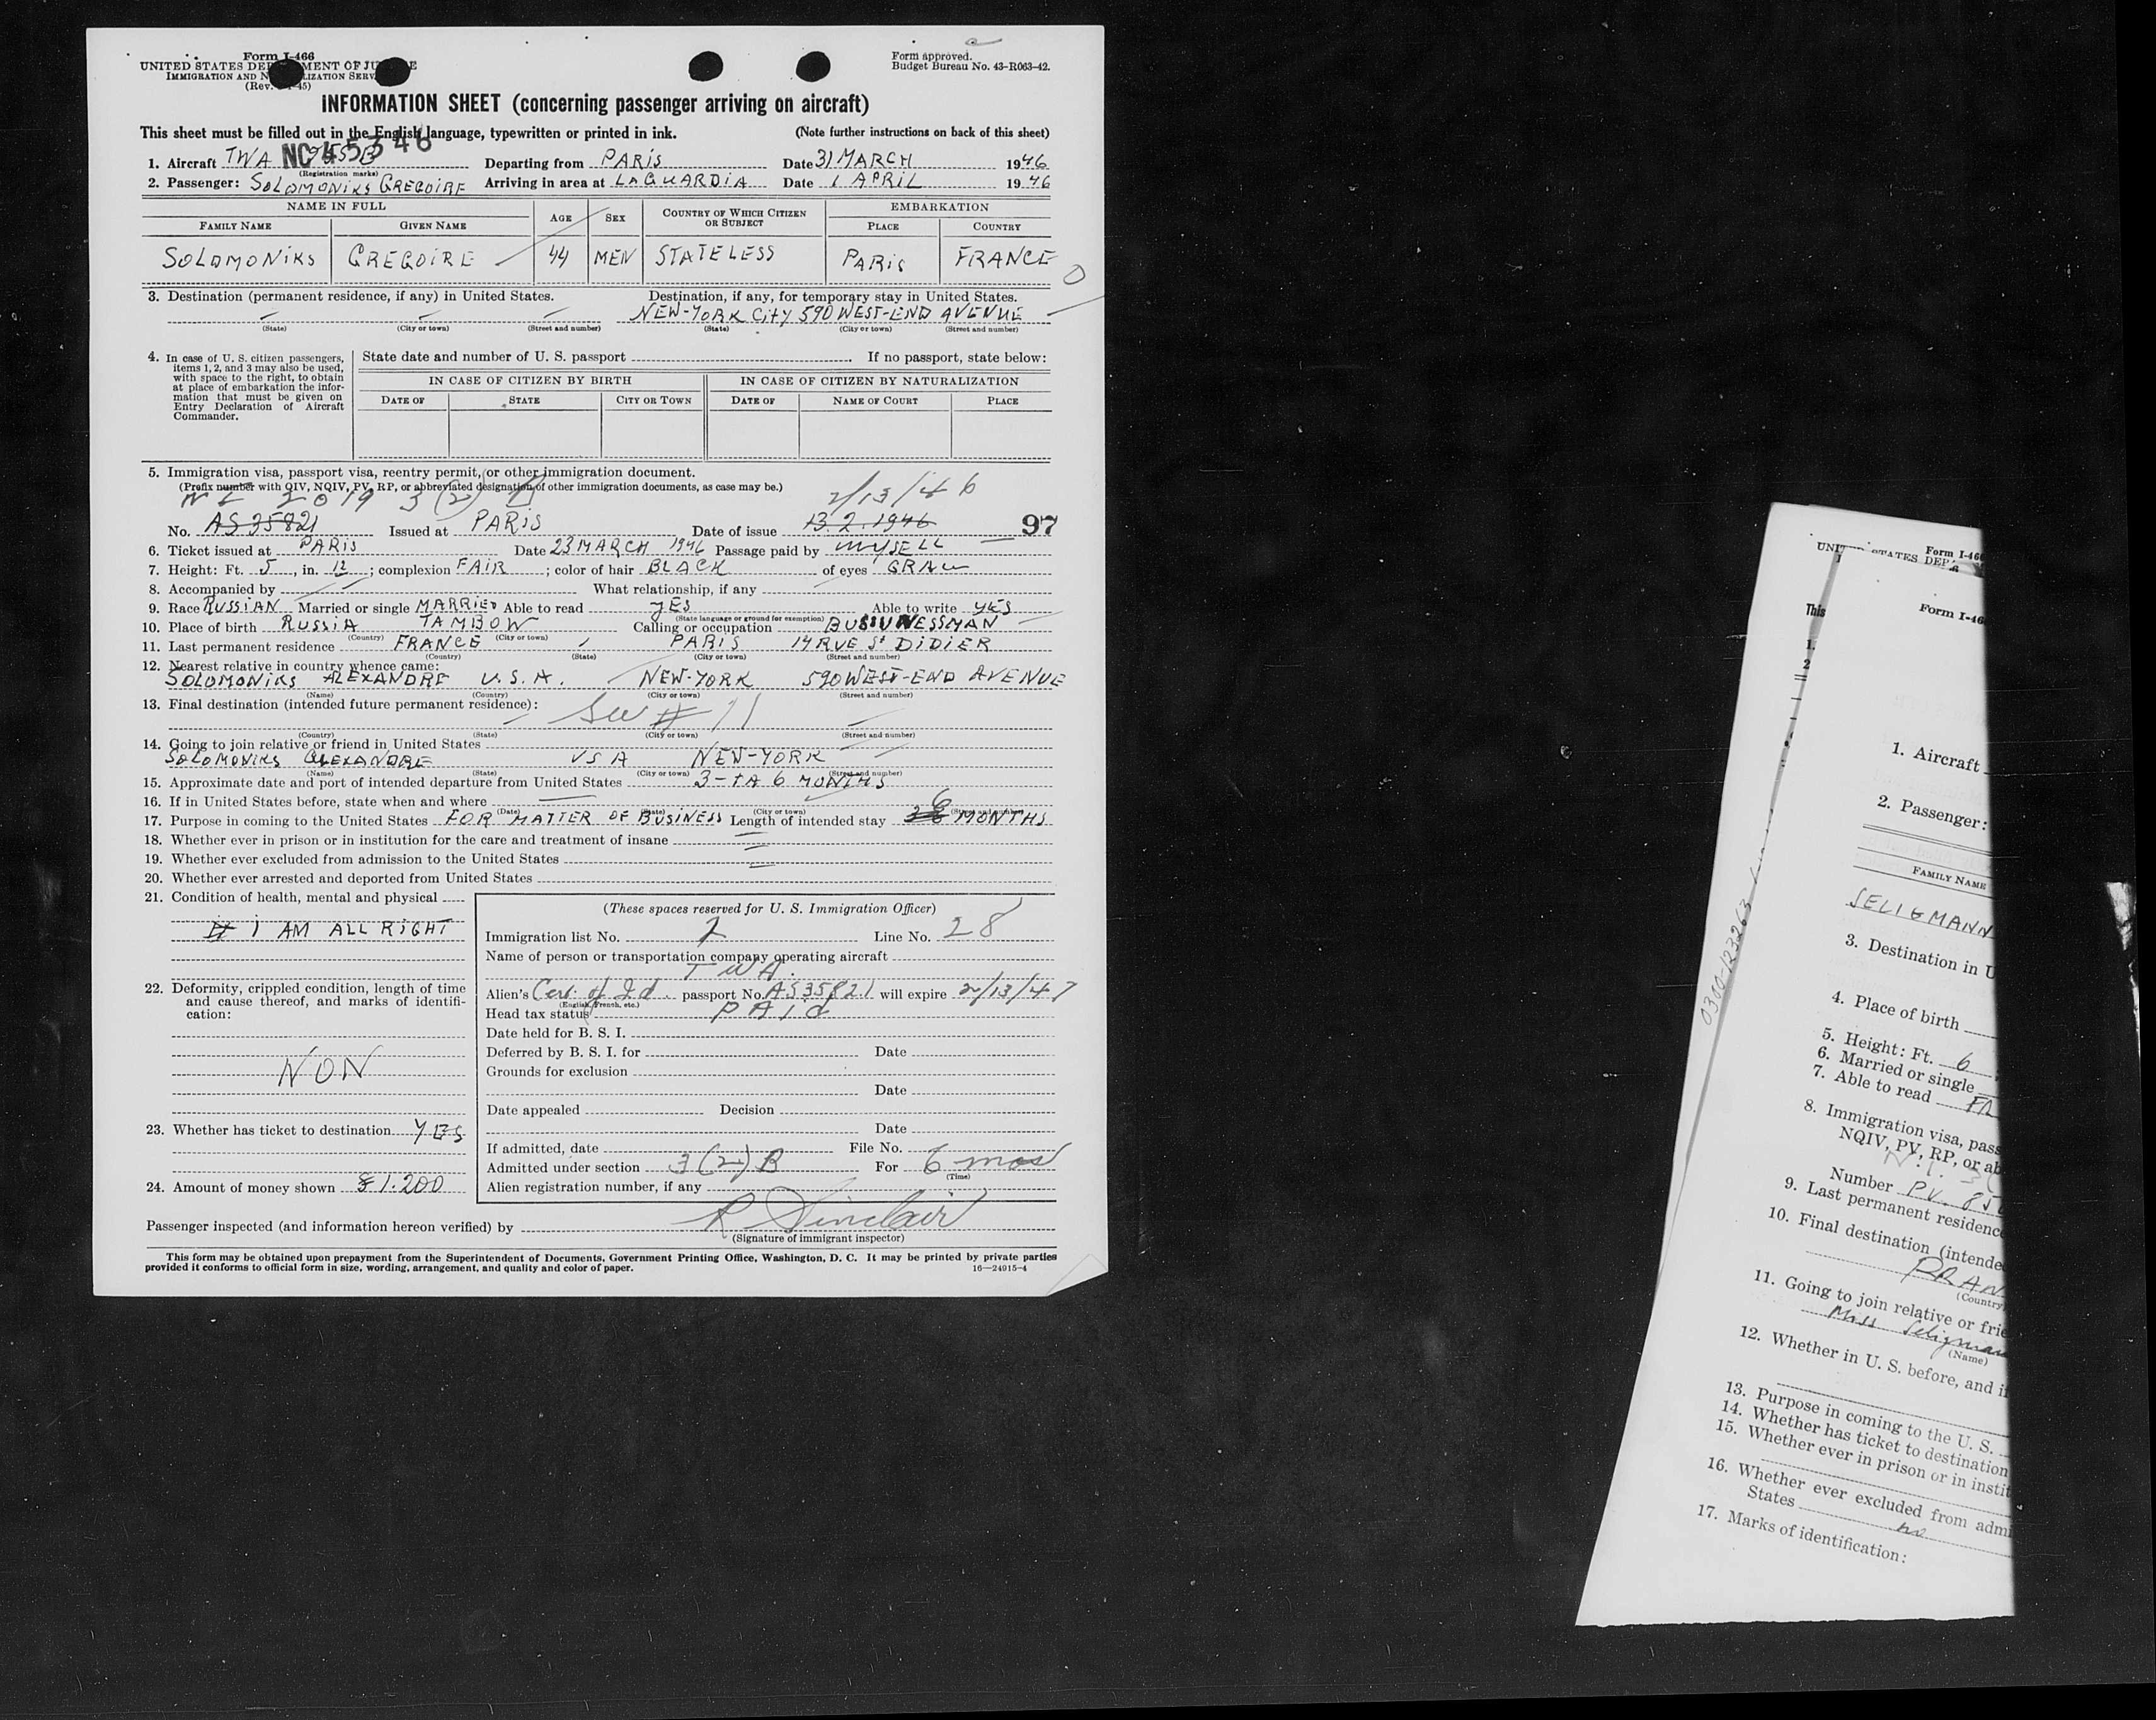 Form I-466
UNITED STATES DEPARTMENT OF JUSTICE
IMMIGRATION AND NATURALIZATION SERVICE
(Rev. 45)
Form approved.
Budget Bureau No. 43-R063-42.
INFORMATION SHEET (concerning passenger arriving on aircraft)
This sheet must be filled out in the English language, typewritten or printed in ink. (Note further instructions on back of this sheet)
1. Aircraft TWA NC 45346 Departing from PARIS Date 31 MARCH 1946
(Registration marks)
2. Passenger: SOLOMONIKS GREGOIRE Arriving in area at LAGUARDIA Date 1 APRIL 1946
NAME IN FULL AGE SEX COUNTRY OF WHICH CITIZEN OR SUBJECT EMBARKATION
FAMILY NAME GIVEN NAME PLACE COUNTRY
SOLOMONIKS GREGOIRE 44 MEN STATELESS PARIS FRANCE
3. Destination (permanent residence, if any) in United States. Destination, if any, for temporary stay in United States.
NEW-YORK CITY 590 WEST-END AVENUE
(State) (City or town) (Street and number) (State) (City or town) (Street and number)
4. In case of U. S. citizen passengers, items 1, 2, and 3 may also be used, with space to the right, to obtain at place of embarkation the information that must be given on Entry Declaration of Aircraft Commander.
State date and number of U. S. passport . If no passport, state below:
IN CASE OF CITIZEN BY BIRTH IN CASE OF CITIZEN BY NATURALIZATION
DATE OF STATE CITY OR TOWN DATE OF NAME OF COURT PLACE
5. Immigration visa, passport visa, reentry permit, or other immigration document.
(Prefix number with QIV, NQIV, PV, RP, or abbreviated designation of other immigration documents, as case may be.)
2019 3(2) 2/13/46
No. AS 35821 Issued at PARIS Date of issue 13.2.1946 97
6. Ticket issued at PARIS Date 23 MARCH 1946 Passage paid by MYSELL
7. Height: Ft. 5, in. 12; complexion FAIR; color of hair BLACK of eyes
8. Accompanied by What relationship, if any
9. Race RUSSIAN Married or single MARRIED Able to read YES Able to write YES
(State language or ground for exemption)
10. Place of birth RUSSIA TAMBOW Calling or occupation BUSINESSMAN
(Country) (City or town)
11. Last permanent residence FRANCE PARIS 14 RUE St DIDIER
(Country) (State) (City or town) (Street and number)
12. Nearest relative in country whence came:
SOLOMONIKS ALEXANDRE U.S.A. NEW-YORK 590 WEST-END AVENUE
(Name) (Country) (City or town) (Street and number)
13. Final destination (intended future permanent residence):
See # 11
(Country) (State) (City or town) (Street and number)
14. Going to join relative or friend in United States
SOLOMONIKS ALEXANDRE USA NEW-YORK
(Name) (State) (City or town) (Street and number)
15. Approximate date and port of intended departure from United States 3-TA 6 MONTHS
16. If in United States before, state when and where
(Date) (State) (City or town) (Street and number)
17. Purpose in coming to the United States FOR MATTER OF BUSINESS Length of intended stay 6 MONTHS
18. Whether ever in prison or in institution for the care and treatment of insane
19. Whether ever excluded from admission to the United States
20. Whether ever arrested and deported from United States
21. Condition of health, mental and physical
I AM ALL RIGHT
22. Deformity, crippled condition, length of time and cause thereof, and marks of identification:
NON
23. Whether has ticket to destination YES
24. Amount of money shown $1.200
(These spaces reserved for U. S. Immigration Officer)
Immigration list No. 2 Line No. 28
Name of person or transportation company operating aircraft
TWA.
Alien's Cert. of Id. passport No. AS35821 will expire 2/13/47
(English, French, etc.)
Head tax status PAId
Date held for B. S. I.
Deferred by B. S. I. for Date
Grounds for exclusion
Date
Date appealed Decision
Date
If admitted, date File No.
Admitted under section 3(2)B For 6 mos
(Time)
Alien registration number, if any
Passenger inspected (and information hereon verified) by R Sinclair
(Signature of immigrant inspector)
This form may be obtained upon prepayment from the Superintendent of Documents, Government Printing Office, Washington, D. C. It may be printed by private parties
provided it conforms to official form in size, wording, arrangement, and quality and color of paper. 16—24915-4
Form I-466
STATES DEP
This
Form I-46
1.
2
1. Aircraft
2. Passenger:
FAMILY NAME
SELIGMANN
3. Destination in U
4. Place of birth
5. Height: Ft. 6
6. Married or single
7. Able to read
8. Immigration visa, pass
NQIV, PV, RP, or ab
Number PV. 85
9. Last permanent residenc
10. Final destination (intende
FRAN
(Country
11. Going to join relative or frie
Miss Seligman
(Name)
12. Whether in U. S. before, and i
13. Purpose in coming to the U. S.
14. Whether has ticket to destination
15. Whether ever in prison or in instit
16. Whether ever excluded from admi
States no
17. Marks of identification:
0300-123263